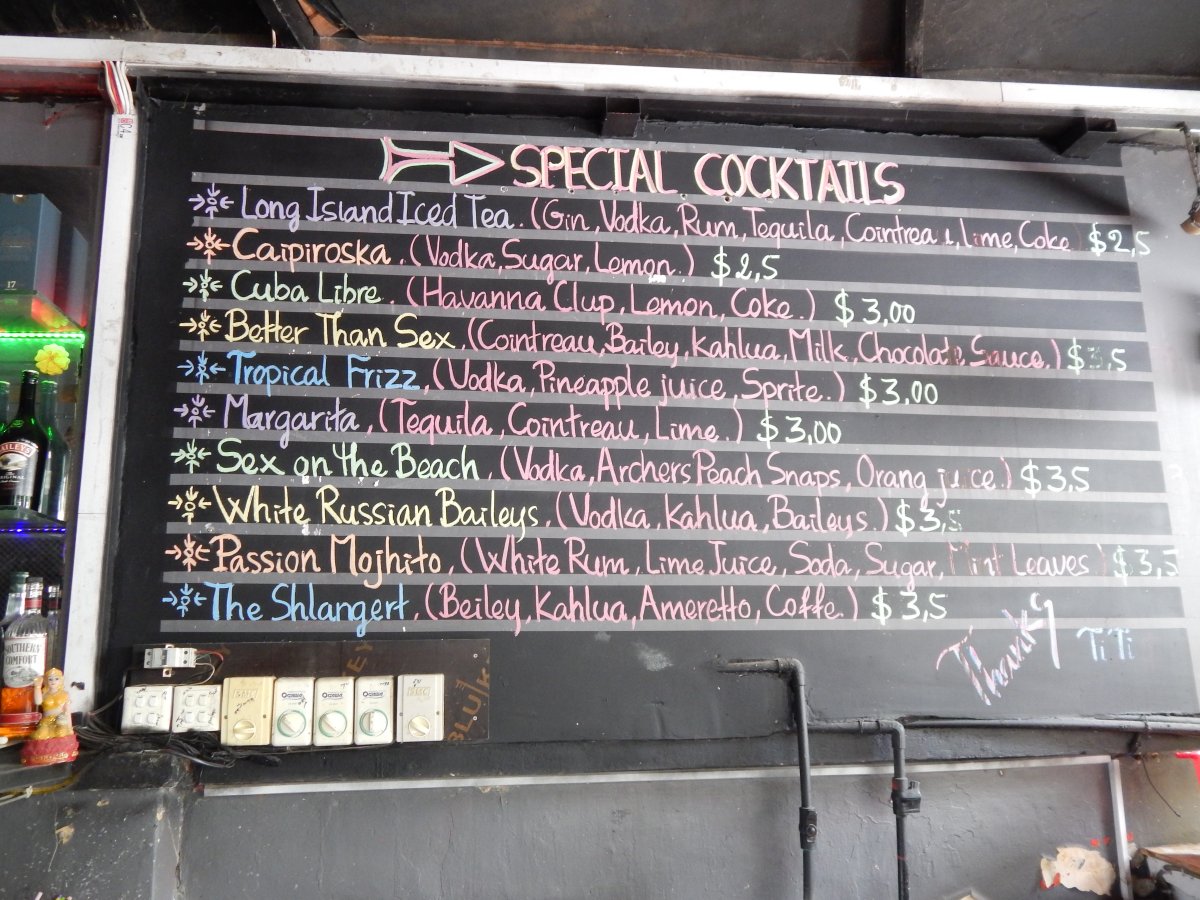 SPECIAL COCKTAILS
Long Island Iced Tea. (Gin, Vodka, Rum, Tequila, Cointreau, Lime, Coke) $2,5
Caipiroska. (Vodka, Sugar, Lemon.) $2,5
Cuba Libre. (Havanna Clup, Lemon, Coke.) $3,00
Better Than Sex. (Cointreau, Bailey, Kahlua, Milk, Chocolate Sauce.) $3,5
Tropical Frizz, (Vodka, Pineapple juice, Sprite.) $3,00
Margarita, (Tequila, Cointreau, Lime.) $3,00
Sex on the Beach, (Vodka, Archers Peach Snaps, Orang juice.) $3,5
White Russian Baileys, (Vodka, Kahlua, Baileys.) $3,5
Passion Mojhito, (White Rum, Lime Juice, Soda, Sugar, Mint Leaves) $3,5
The Shlangert, (Beiley, Kahlua, Ameretto, Coffe.) $3,5
Thank TiTi
BAILEYS
ORIGINAL
SOUTHERN
COMFORT
17